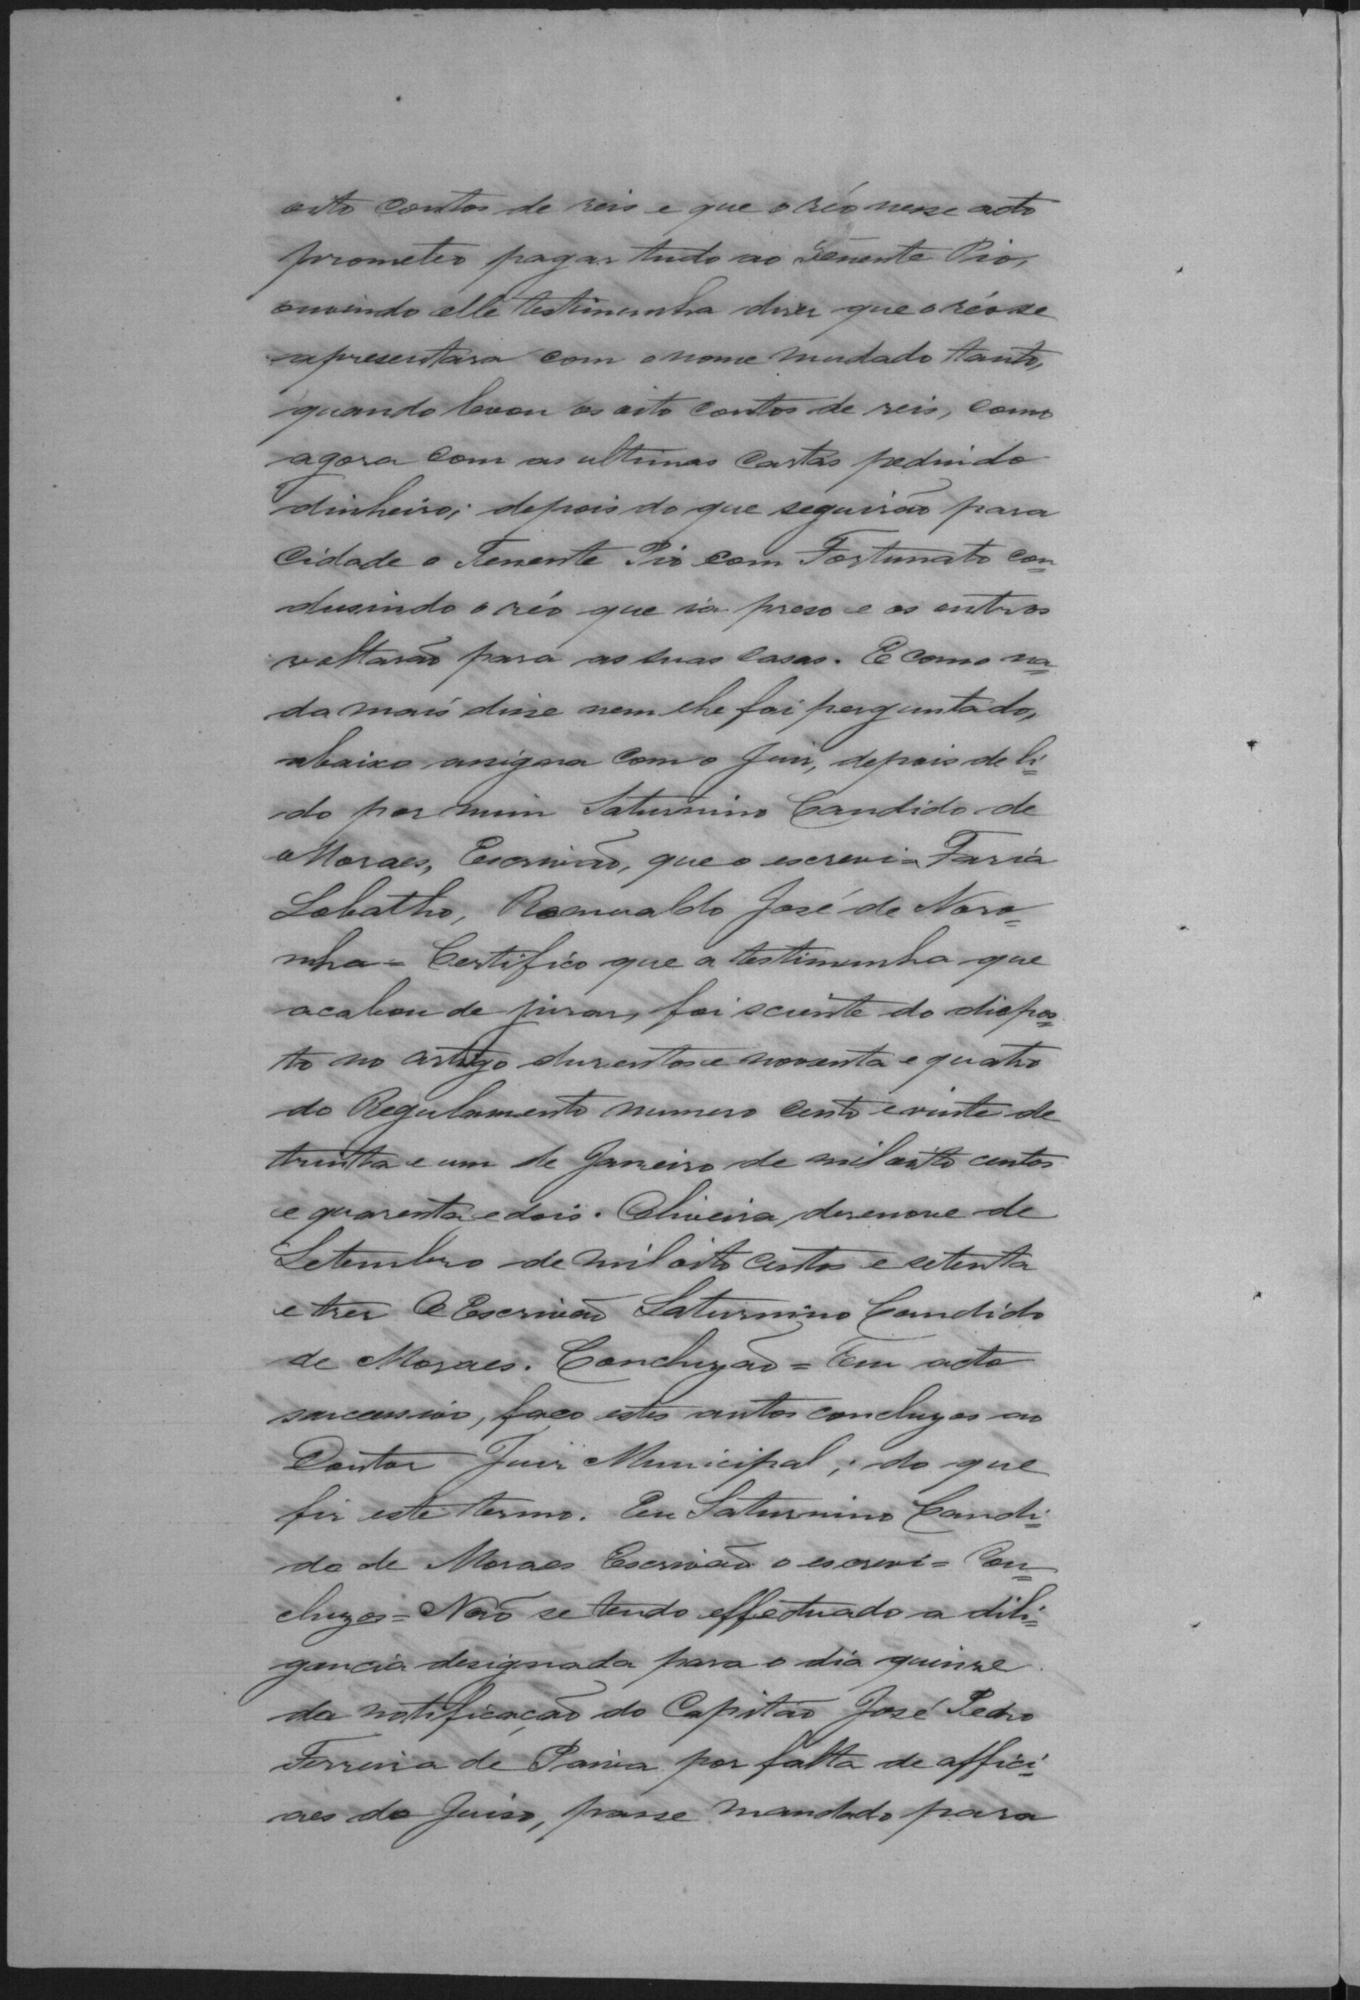 oito contos de reis e que o réo nesse acto
prometeo pagar tudo ao Tenente Pio,
ouvindo elle testimunha dizer que o réo se
apresentara com o nome mudado tanto,
quando levou os oito contos de reis, como
agora com as ultimas cartas pedindo
dinheiro; depois do que seguirão para
Cidade o Tenente Pio com Fortunato con=
dusindo o réo que ia preso e os outros
voltarão para as suas casas. E como na=
da mais disse nem lhe foi perguntado,
abaixo assigna com o Juiz, depois de li=
do por mim Saturnino Candido de
Moraes, Escrivão, que o escrevi = Faria
Lobatho, Romualdo José de Noro=
nha = Certifico que a testimunha que
acabou de jurar, foi sciente do dispos=
to no artigo duzentos e noventa e quatro
do Regulamento numero cento e vinte de
trinta e um de Janeiro de mil oito centos
e quarenta e dois. Oliveira, dezenove de
Setembro de mil oito centos e setenta
e trez O Escrivão Saturnino Candido
de Moraes. Concluzão = Em acto
successivo, faço estes autos concluzos ao
Doutor Juiz Municipal; do que
fiz este termo. Eu Saturnino Candi=
do de Moraes Escrivão o escrevi = Con=
cluzos = Não se tendo effectuado a dili=
gencia designada para o dia quinze
da notificação do Capitão José Pedro
Ferreira de Paiva por falta de offici=
aes do Juizo, passe mandado para